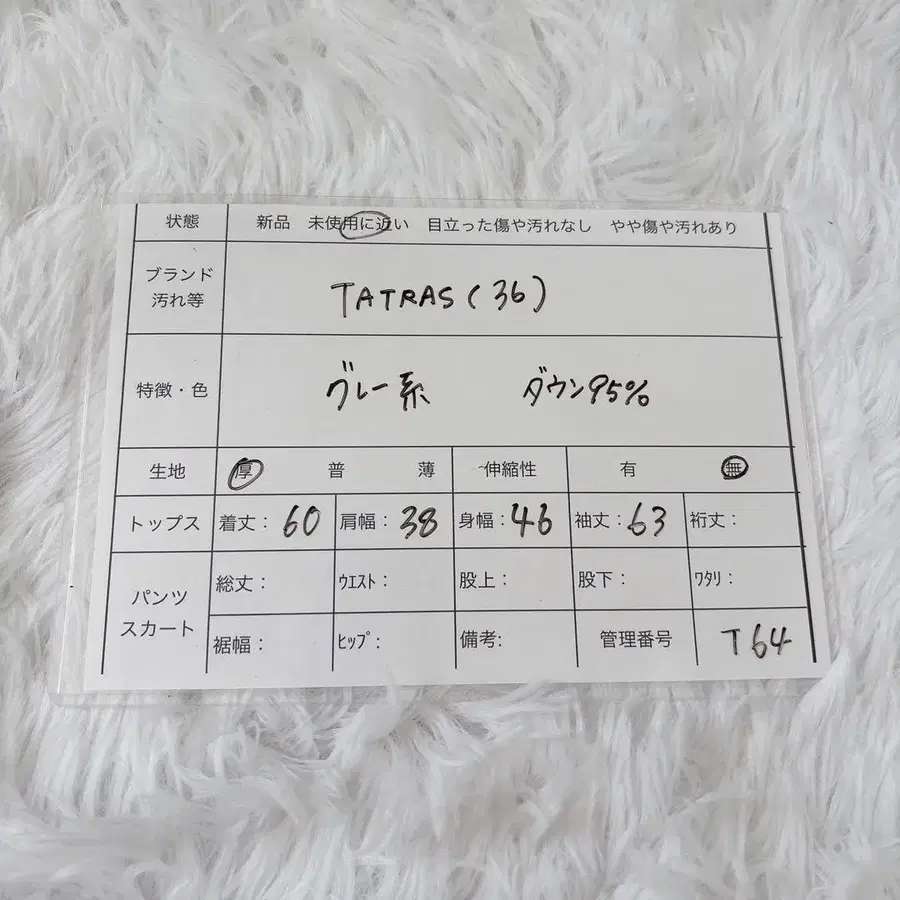 状態 新品 未使用に近い 目立った傷や汚れなし やや傷や汚れあり
ブランド
汚れ等
TATRAS(36)
特徴・色 グレー系 ダウン95%
生地 厚 普 薄 伸縮性 有 無
トップス 着丈: 60 肩幅: 38 身幅: 46 袖丈: 63 裄丈:
パンツ
スカート
総丈: ウエスト: 股上: 股下: ワタリ:
裾幅: ヒップ: 備考: 管理番号 T64